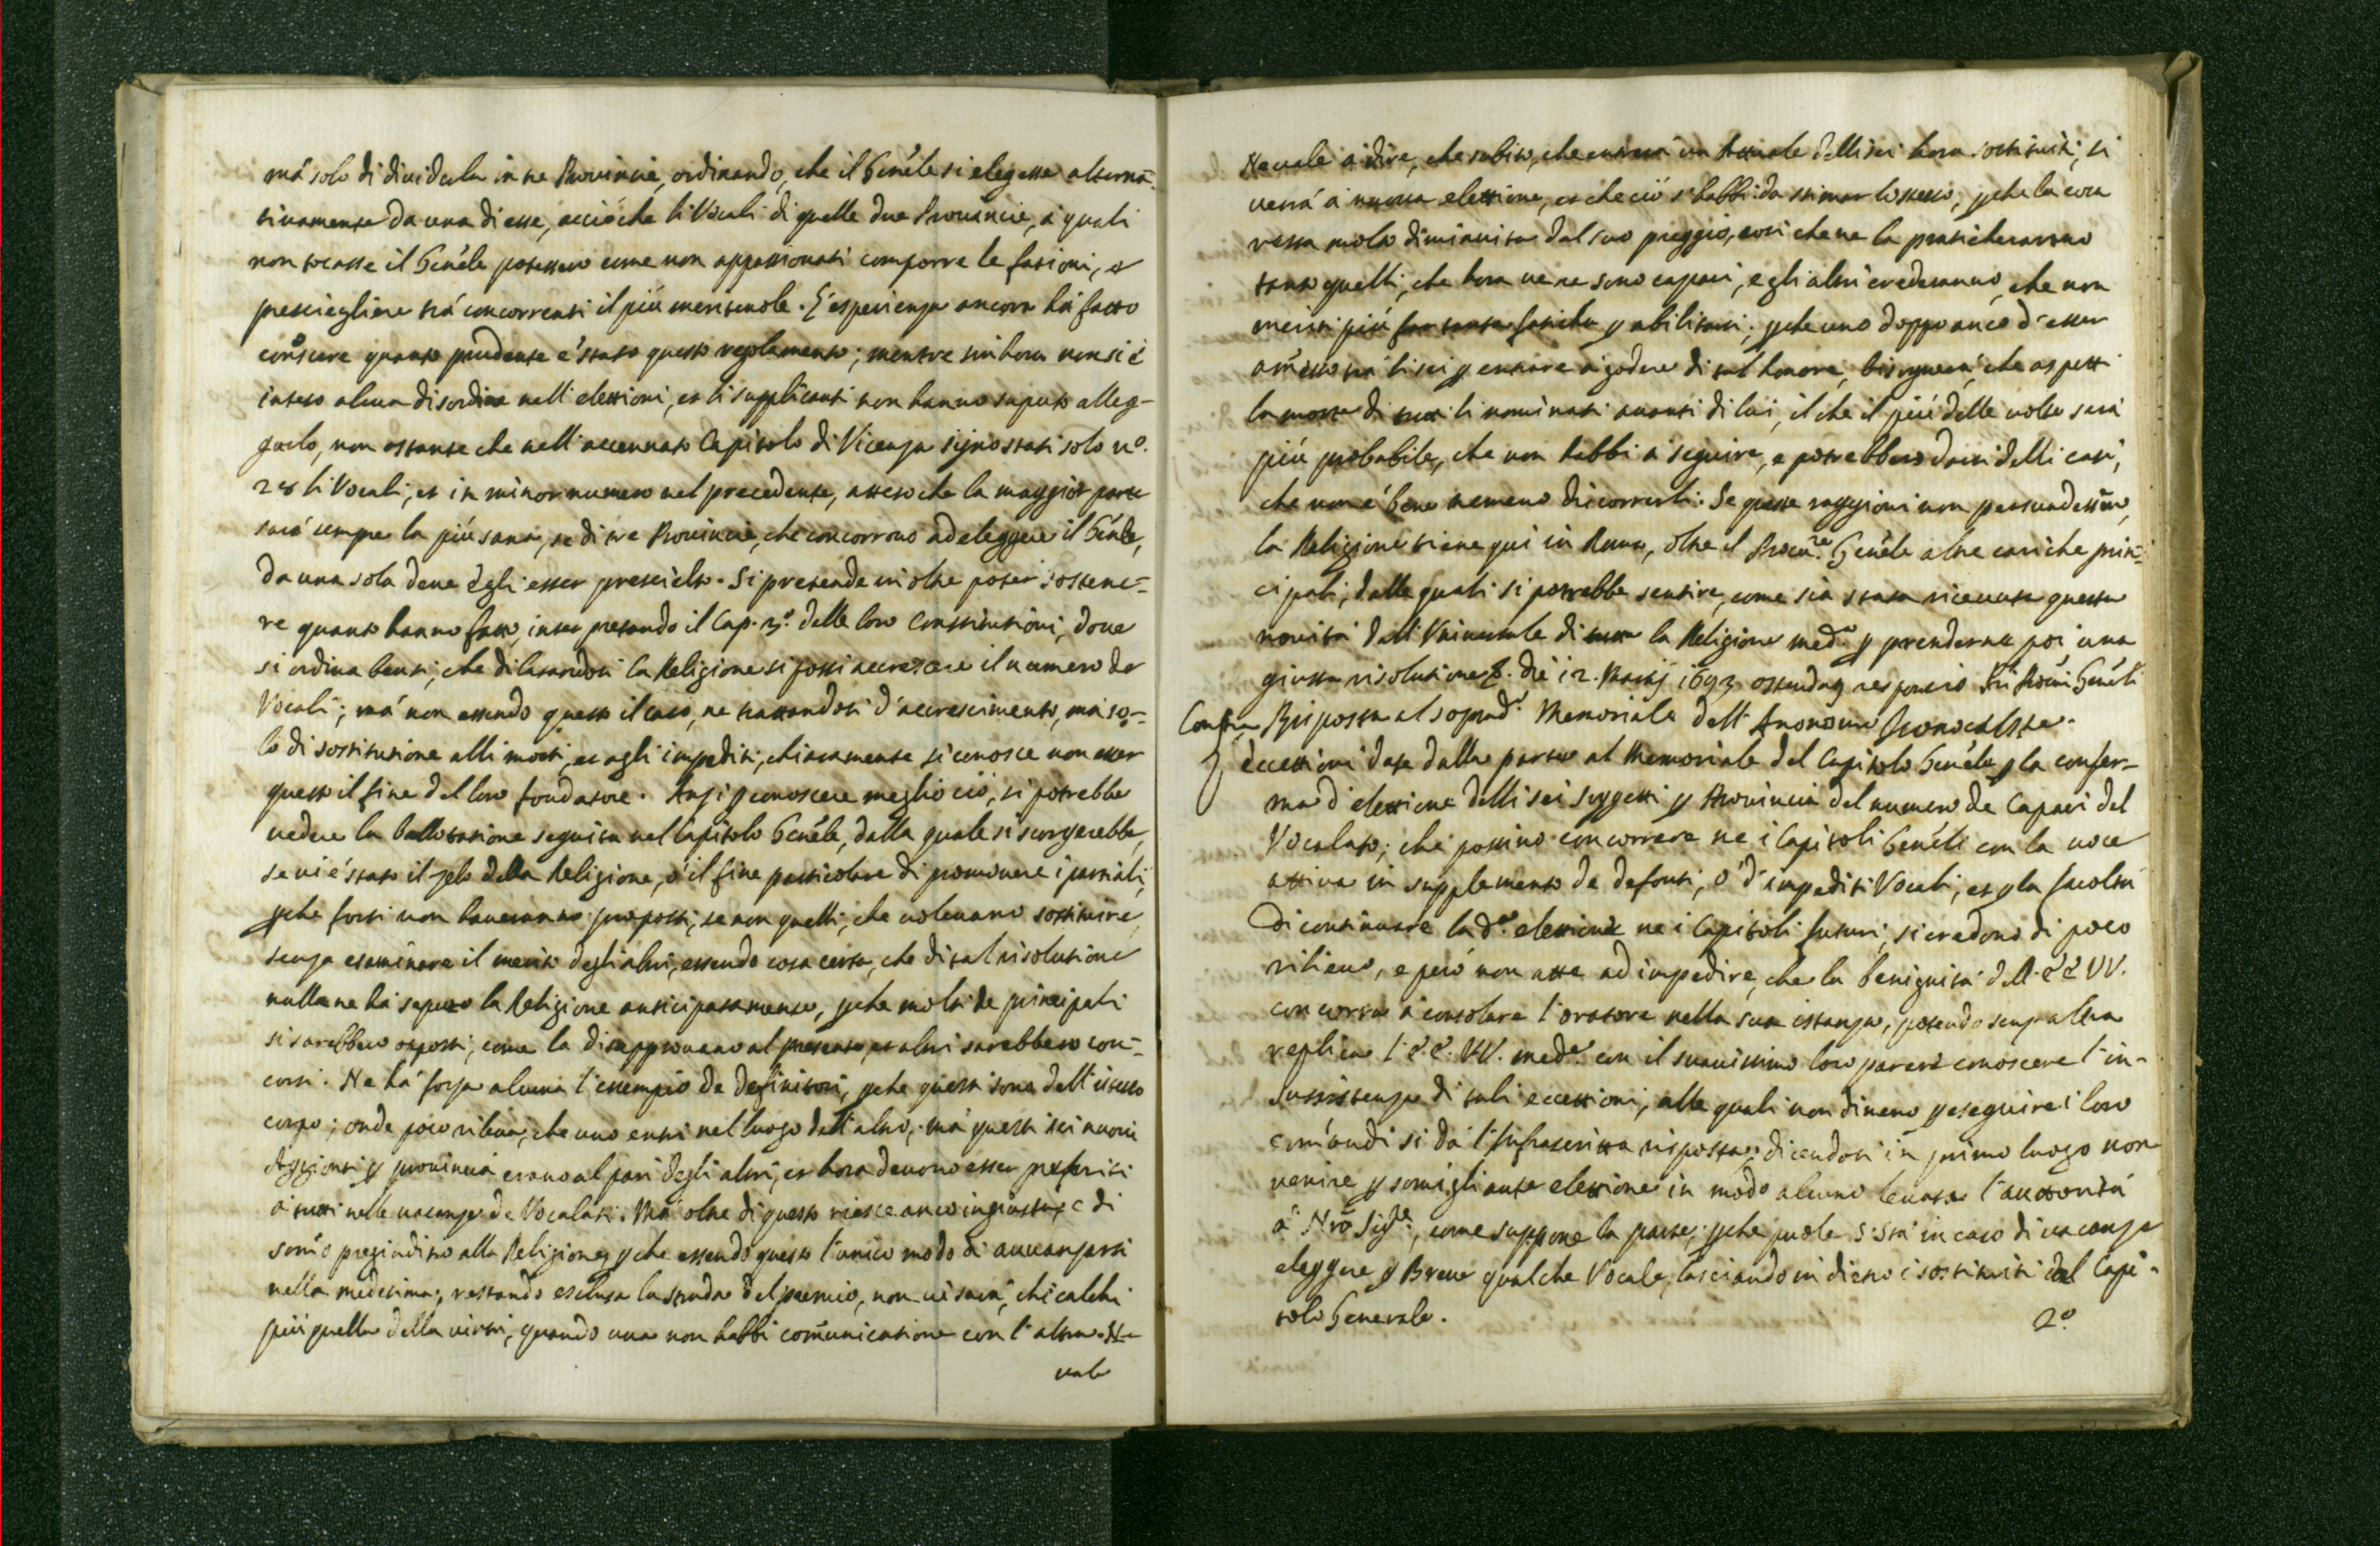 má solo di diuiderla in tre Prouincie, ordinando, che il Gen̄ale si elegesse alterna-
tiuamente da una di esse, acciò che li Vocali di quelle due Prouincie, à quali
non tocasse il Gen̄ale potessero come non appassionati comporre le fationi, et
presciegliere trá concorrenti il più meriteuole. L'esperienza ancora há fatto
conoscere quanto prudente é stato questo regolamento; mentre sin hora non si é
inteso alcun disordine nell'elettioni, et li supplicanti non hanno saputo alleg-
garlo, non ostante che nell'accennato Capitolo di Vicenza sijno stati solo n.º
28 li Vocali, et in minor numero nel precedente, atteso che la maggior parte
sará sempre la piú sana, se di tre Prouincie, che concorrono ad eleggere il Gen̄le,
da una sola deue egli esser prescielto. Si pretende in oltre poter sostene-
re quanto hanno fatto, interpretando il Cap. 3.º delle loro Constitutioni, doue
si ordina bensi, che dilatandosi la Religione si possi accrescere il numero de
Vocali; má non essendo questo il caso, ne trattandosi d'accrescimento, má so-
lo di sostitutione alli morti, et agli impediti, chiaramente si conosce non esser
questo il fine del loro fondatore. Anzi ꝑ conoscere meglio ciò, si potrebbe
uedere la ballotatione seguita nel Capitolo Gen̄ele, dalla quale si scorgerebbe,
se ui é stato il zelo della Religione, ó il fine particolare di promouere i partiali,
ꝑche forsi non haueranno proposti, se non quelli, che uoleuano sostituire,
senza esaminare il merito degli altri, essendo cosa certa, che di tal risolutione
nulla ne há saputo la Religione anticipatamente, ꝑche molti de principali
si sarebbero opposti, come la disapprouano al presente, et altri sarebbero con-
corsi. Ne há forza alcuna l'essempio de Definitori, ꝑche questi sono dell'istesso
corpo; onde poco rilieua, che uno entri nel luogo dell'altro, má questi sei nuoui
Aggionti ꝑ prouincia erano al pari degli altri, et hora deuono esser preferiti
à tutti nelle uacanze de Vocalati. Má oltre di questo riesce anco ingiusto, e di
som̄o pregiuditio alla Religione, ꝑ che essendo questo l'unico modo di auuanzarsi
nella medesima, restando esclusa la strada del premio, non ui sará, chi calchi
piú quella della uirtù, quando una non habbi com̄unicatione con l'altra. Ne
uale
Ne uale à dire, che subito, che entrerà un Attuale delli sei hora sostituiti, si
uerrá à nuoua elettione, et che ció s'habbi da stimar lo stesso, ꝑche la cosa
resta molto diminuita dal suo preggio, cosi che ne la praticheranno
tanto quelli, che hora ne ne sono capaci, e gli altri crederanno, che non
meriti piú far tanta fatica ꝑ abilitarsi, ꝑche uno doppo anco d'esser
am̄esso trá li sei ꝑ entrare à godere di tal honore, bisognerà, che aspetti
la morte di tutti li nominati auanti di lui, il che il piú delle uolte sará
piú probabile, che non habbi à seguire, e potrebbero darsi delli casi,
che non é bene nemeno discorrerli. Se queste raggioni non persuadessero,
la Religione tiene qui in Roma, oltre il Procu.re Gen̄ele altre cariche prin-
cipali, dalle quali si potrebbe sentire, come sia stata riceuuta questa
nouità dall'Vniuersale di tutta la Religione med.a ꝑ prenderne poi una
giusta risolutione. die 12. 1693
Contra Risposta al soprad.o Memoriale dell' Anonimo
L'eccettioni date dalla parte al Memoriale del Capitolo Gen̄ele ꝑ la confer-
ma d'elettione delli sei soggetti ꝑ Prouincia del numero de Capaci del
Vocalato, che possino concorrere ne i Capitoli Gen̄eli con la uoce
attiua in supplemento de defonti, ó d'impediti Vocali, et ꝑ la facoltà
di continuare la d.a elettione ne i Capitoli futuri, si credono di poco
rilieuo, e però non atte ad impedire, che la benignità dell' EE VV.
concorra à consolare l'oratore nella sua istanza, potendo senz'altra
replica l' EE. VV. med.e con il sauissimo loro parere conoscere l'in-
sussistenza di tali eccettioni, alle quali non dimeno ꝑ eseguire i loro
com̄andi si dà l'Infrascritta risposta; dicendosi in primo luogo non
uenire ꝑ somigliante elettione in modo alcuno leuata l'auttorità
à Nr̄o Sig.re, come suppone la parte, ꝑche puole S. Stà in caso di uacanza
eleggere ꝑ Breue qualche Vocale, lasciando in dietro i sostituiti dal Capi-
tolo Generale.
2.º